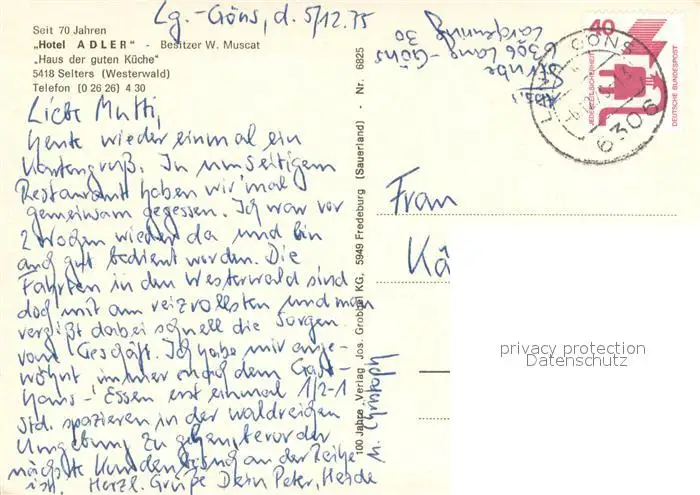 Lg.-Göns, d. 5/12.75
Seit 70 Jahren
„Hotel ADLER" - Besitzer W. Muscat
„Haus der guten Küche"
5418 Selters (Westerwald)
Telefon (0 26 26) 4 30
Liebe Mutti,
heute wieder einmal ein
Kartengruß. In umseitigem
Restaurant haben wir 'mal
gemeinsam gegessen. Ich war vor
2 Wochen wieder da und bin
auch gut bedient worden. Die
Fahrten in den Westerwald sind
doch mit am reizvollsten und man
vergißt dabei schnell die Sorgen
vom Geschäft. Ich habe mir ange-
wöhnt immer nach dem Gast-
haus-Essen erst einmal 1/2-1
Std. spazieren in der waldreichen
Umgebung zu gehen, bevor der
nächste Kundenbesuch an der Reihe
ist. Herzl. Grüße Dein Peter, Heide
u. Christoph
100 Jahre Verlag Jos. Grobbel KG, 5949 Fredeburg (Sauerland) - Nr. 6825
Abs.:
Strube
6306 Lang-Göns
30
40
JEDERZEIT SICHERHEIT
DEUTSCHE BUNDESPOST
GÖNS
6306
Frau
Kä
privacy protection
Datenschutz